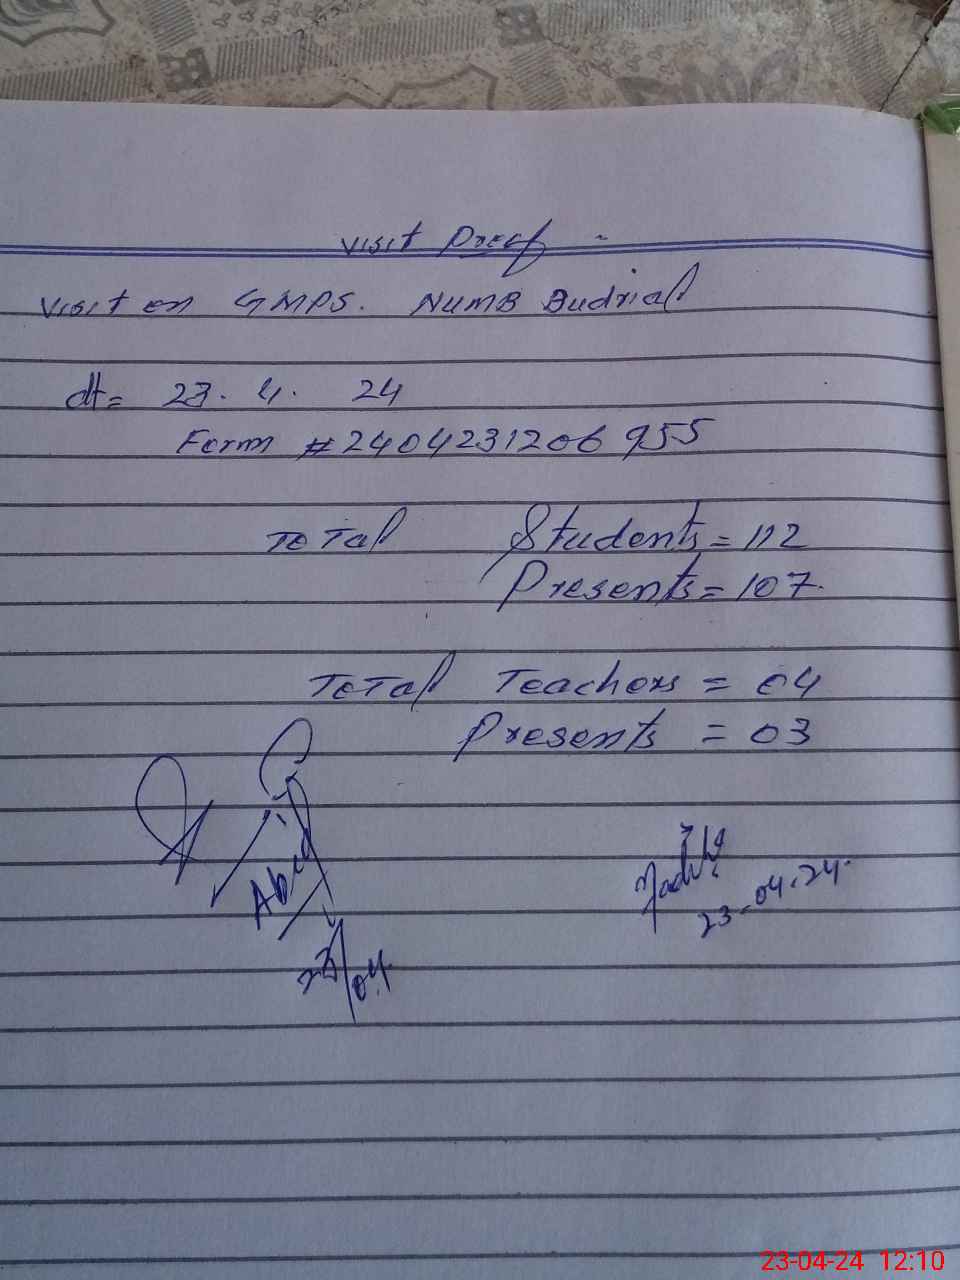 Visit Proof -
Visit on GMPS. Numb Budrial
dt= 23. 4. 24
Form #2404231206955
Total Students = 112
Presents = 107.
Total Teachers = 04
Presents = 03
Abid
23/04.
23-04-24.
23-04-24 12:10